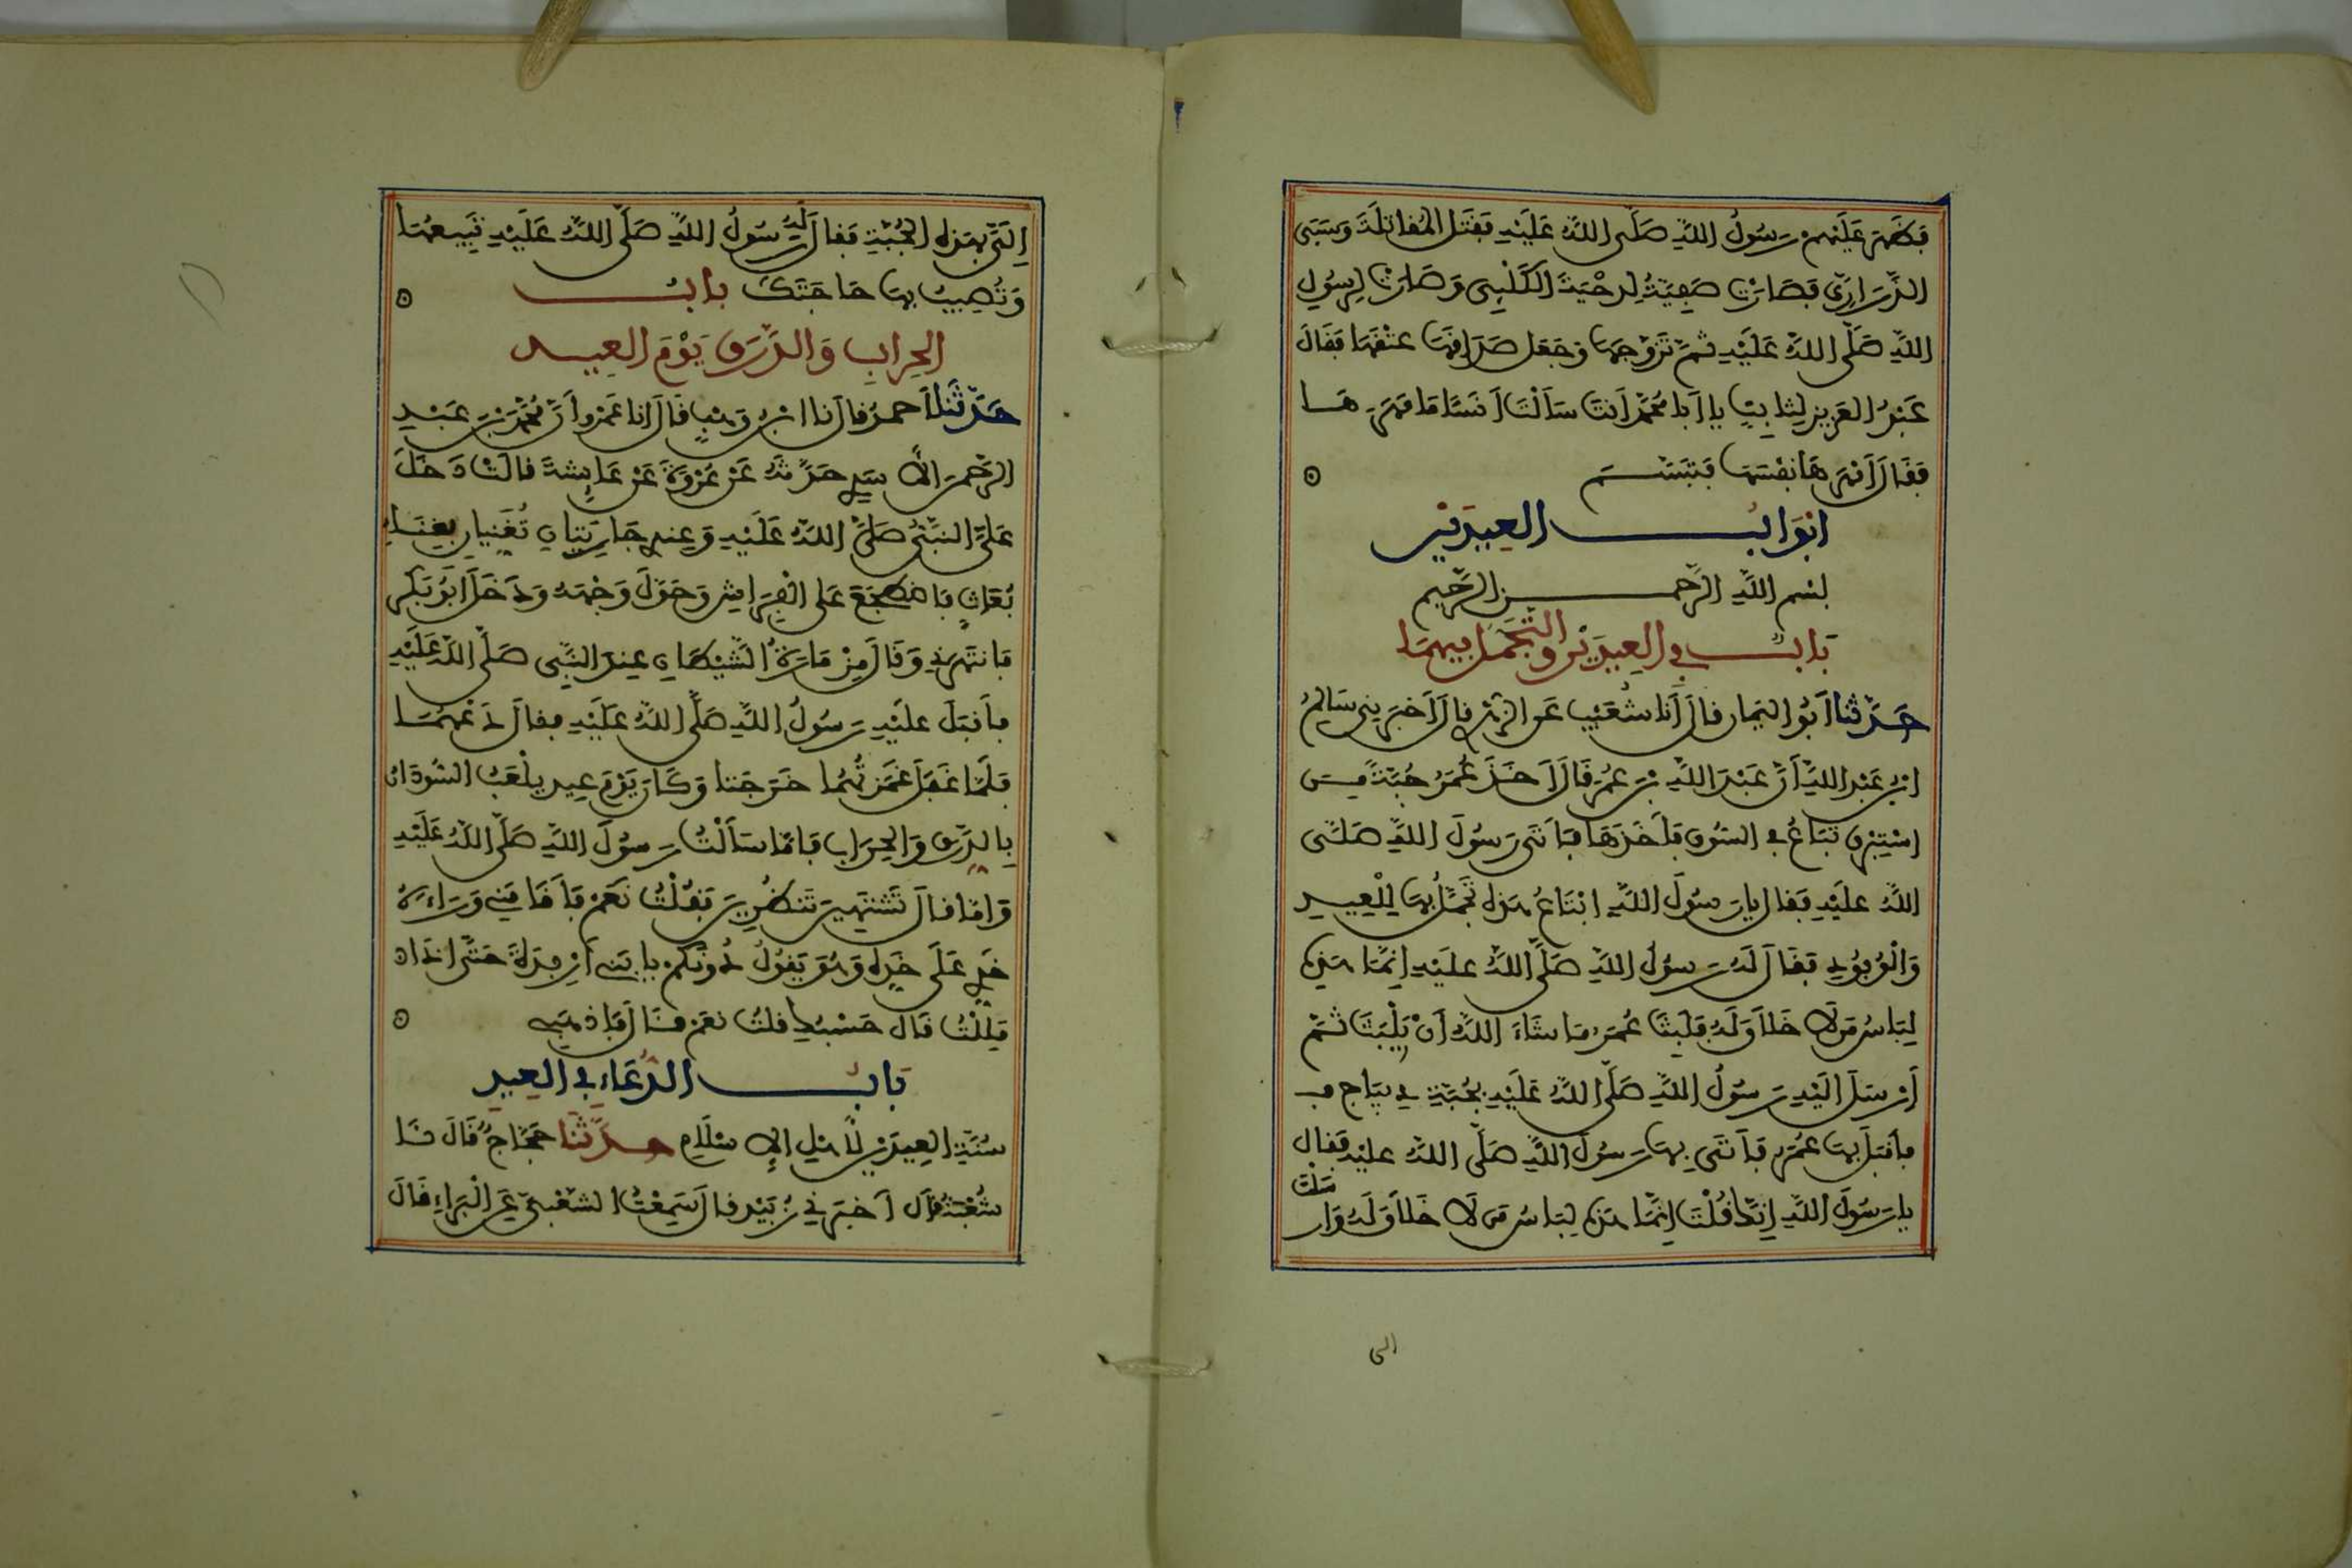 فظهر عليهم رسول الله صلى الله عليه فقتل المقاتلة وسبى
الذراري فصارت صفية لدحية الكلبي وصارت لرسول
الله صلى الله عليه ثم تزوجها وجعل صداقها عتقها فقال
عبد العزيز لثابت يا ابا محمد أنت سألت أنسا ما مهرها
فقال أمهرها نفسها فتبسم
ابواب العيدين
بسم الله الرحمن الرحيم
باب في العيدين والتجمل فيهما
حدثنا أبو اليمان قال أنا شعيب عن الزهري قال أخبرني سالم
ابن عبد الله أن عبد الله بن عمر قال أخذ عمر جبة من
استبرق تباع في السوق فأخذها فأتى رسول الله صلى
الله عليه فقال يا رسول الله ابتاع هذه تجمل بها للعيد
والوفود فقال له رسول الله صلى الله عليه إنما هذه
لباس من لا خلاق له فلبث عمر ما شاء الله أن يلبث ثم
أرسل اليه رسول الله صلى الله عليه بجبة ديباج
فأقبل بها عمر فأتى بها رسول الله صلى الله عليه فقال
يا رسول الله إنك قلت إنما هذه لباس من لا خلاق له وار
سلت
الى
إلي بهذه الجبة فقال له رسول الله صلى الله عليه تبيعها
وتصيب بها حاجتك باب
الحراب والدرق يوم العيد
حدثنا أحمد قال نا ابن وهب قال انا عمرو أن محمد بن عبد
الرحمن الأسدي حدثه عن عروة عن عايشة قالت دخل
علي النبي صلى الله عليه وعندي جاريتان تغنيان بغناء
بعاث فاضطجع على الفراش وحول وجهه ودخل أبو بكر
فانتهرني وقال مزمارة الشيطان عند النبي صلى الله عليه
فأقبل عليه رسول الله صلى الله عليه فقال دعهما
فلما غفل غمزتهما خرجتا وكان يوم عيد يلعب السودان
بالدرق والحراب فاما سألت رسول الله صلى الله عليه
واما قال تشتهين تنظرين فقلت نعم فأقامني وراءه
خدي على خده وهو يقول دونكم يا بني أرفدة حتى اذا
مللت قال حسبك قلت نعم قال فاذهبي
باب الدعاء في العيد
سنة العيدين لأهل الاسلام حدثنا حجاج قال نا
شعبة قال أخبرني زبيد قال سمعت الشعبي عن البراء قال